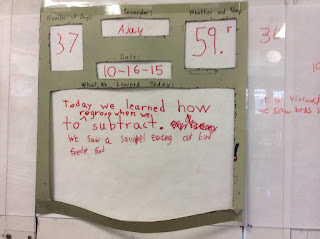 Number of Days:
Recorder:
Weather and Temp
37
Ajay
59. F
Date:
10-16-15
What We Learned Today:
Today we learned how
regroup when we
to ^ subtract.
We saw a squirrel eating out bird
feeder food
34
10
it is
we saw birds